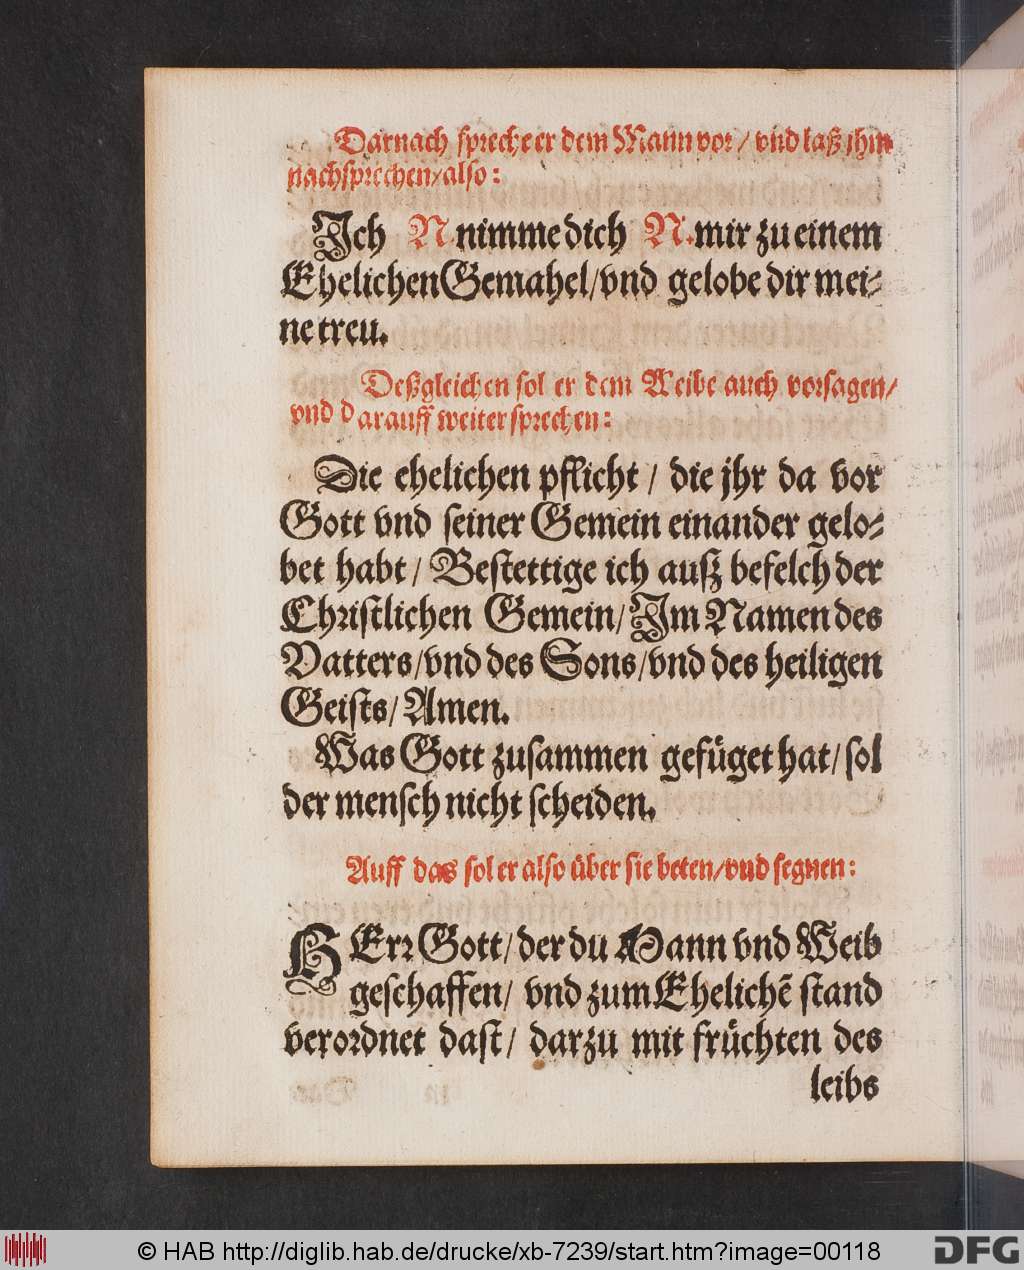 Darnach ſpreche er dem Mann vor / vnd laß jhm
nachſprechen / alſo:
Ich N. nimme dich N. mir zu einem
Ehelichen Gemahel / vnd gelobe dir mei⸗
ne treu.
Deßgleichen ſol er dem Weibe auch vorſagen /
vnd darauff weiter ſprechen:
Die ehelichen pflicht / die jhr da vor
Gott vnd ſeiner Gemein einander gelo⸗
bet habt / Beſtettige ich auß befelch der
Chriſtlichen Gemein / Im Namen des
Vatters / vnd des Sons / vnd des heiligen
Geiſts / Amen.
Was Gott zuſammen gefüget hat / ſol
der menſch nicht ſcheiden.
Auff das ſol er alſo über ſie beten / vnd ſegnen:
HErr Gott / der du Mann vnd Weib
geſchaffen / vnd zum Ehelichẽ ſtand
verordnet daſt / darzu mit früchten des
leibs
© HAB http://diglib.hab.de/drucke/xb-7239/start.htm?image=00118
DFG